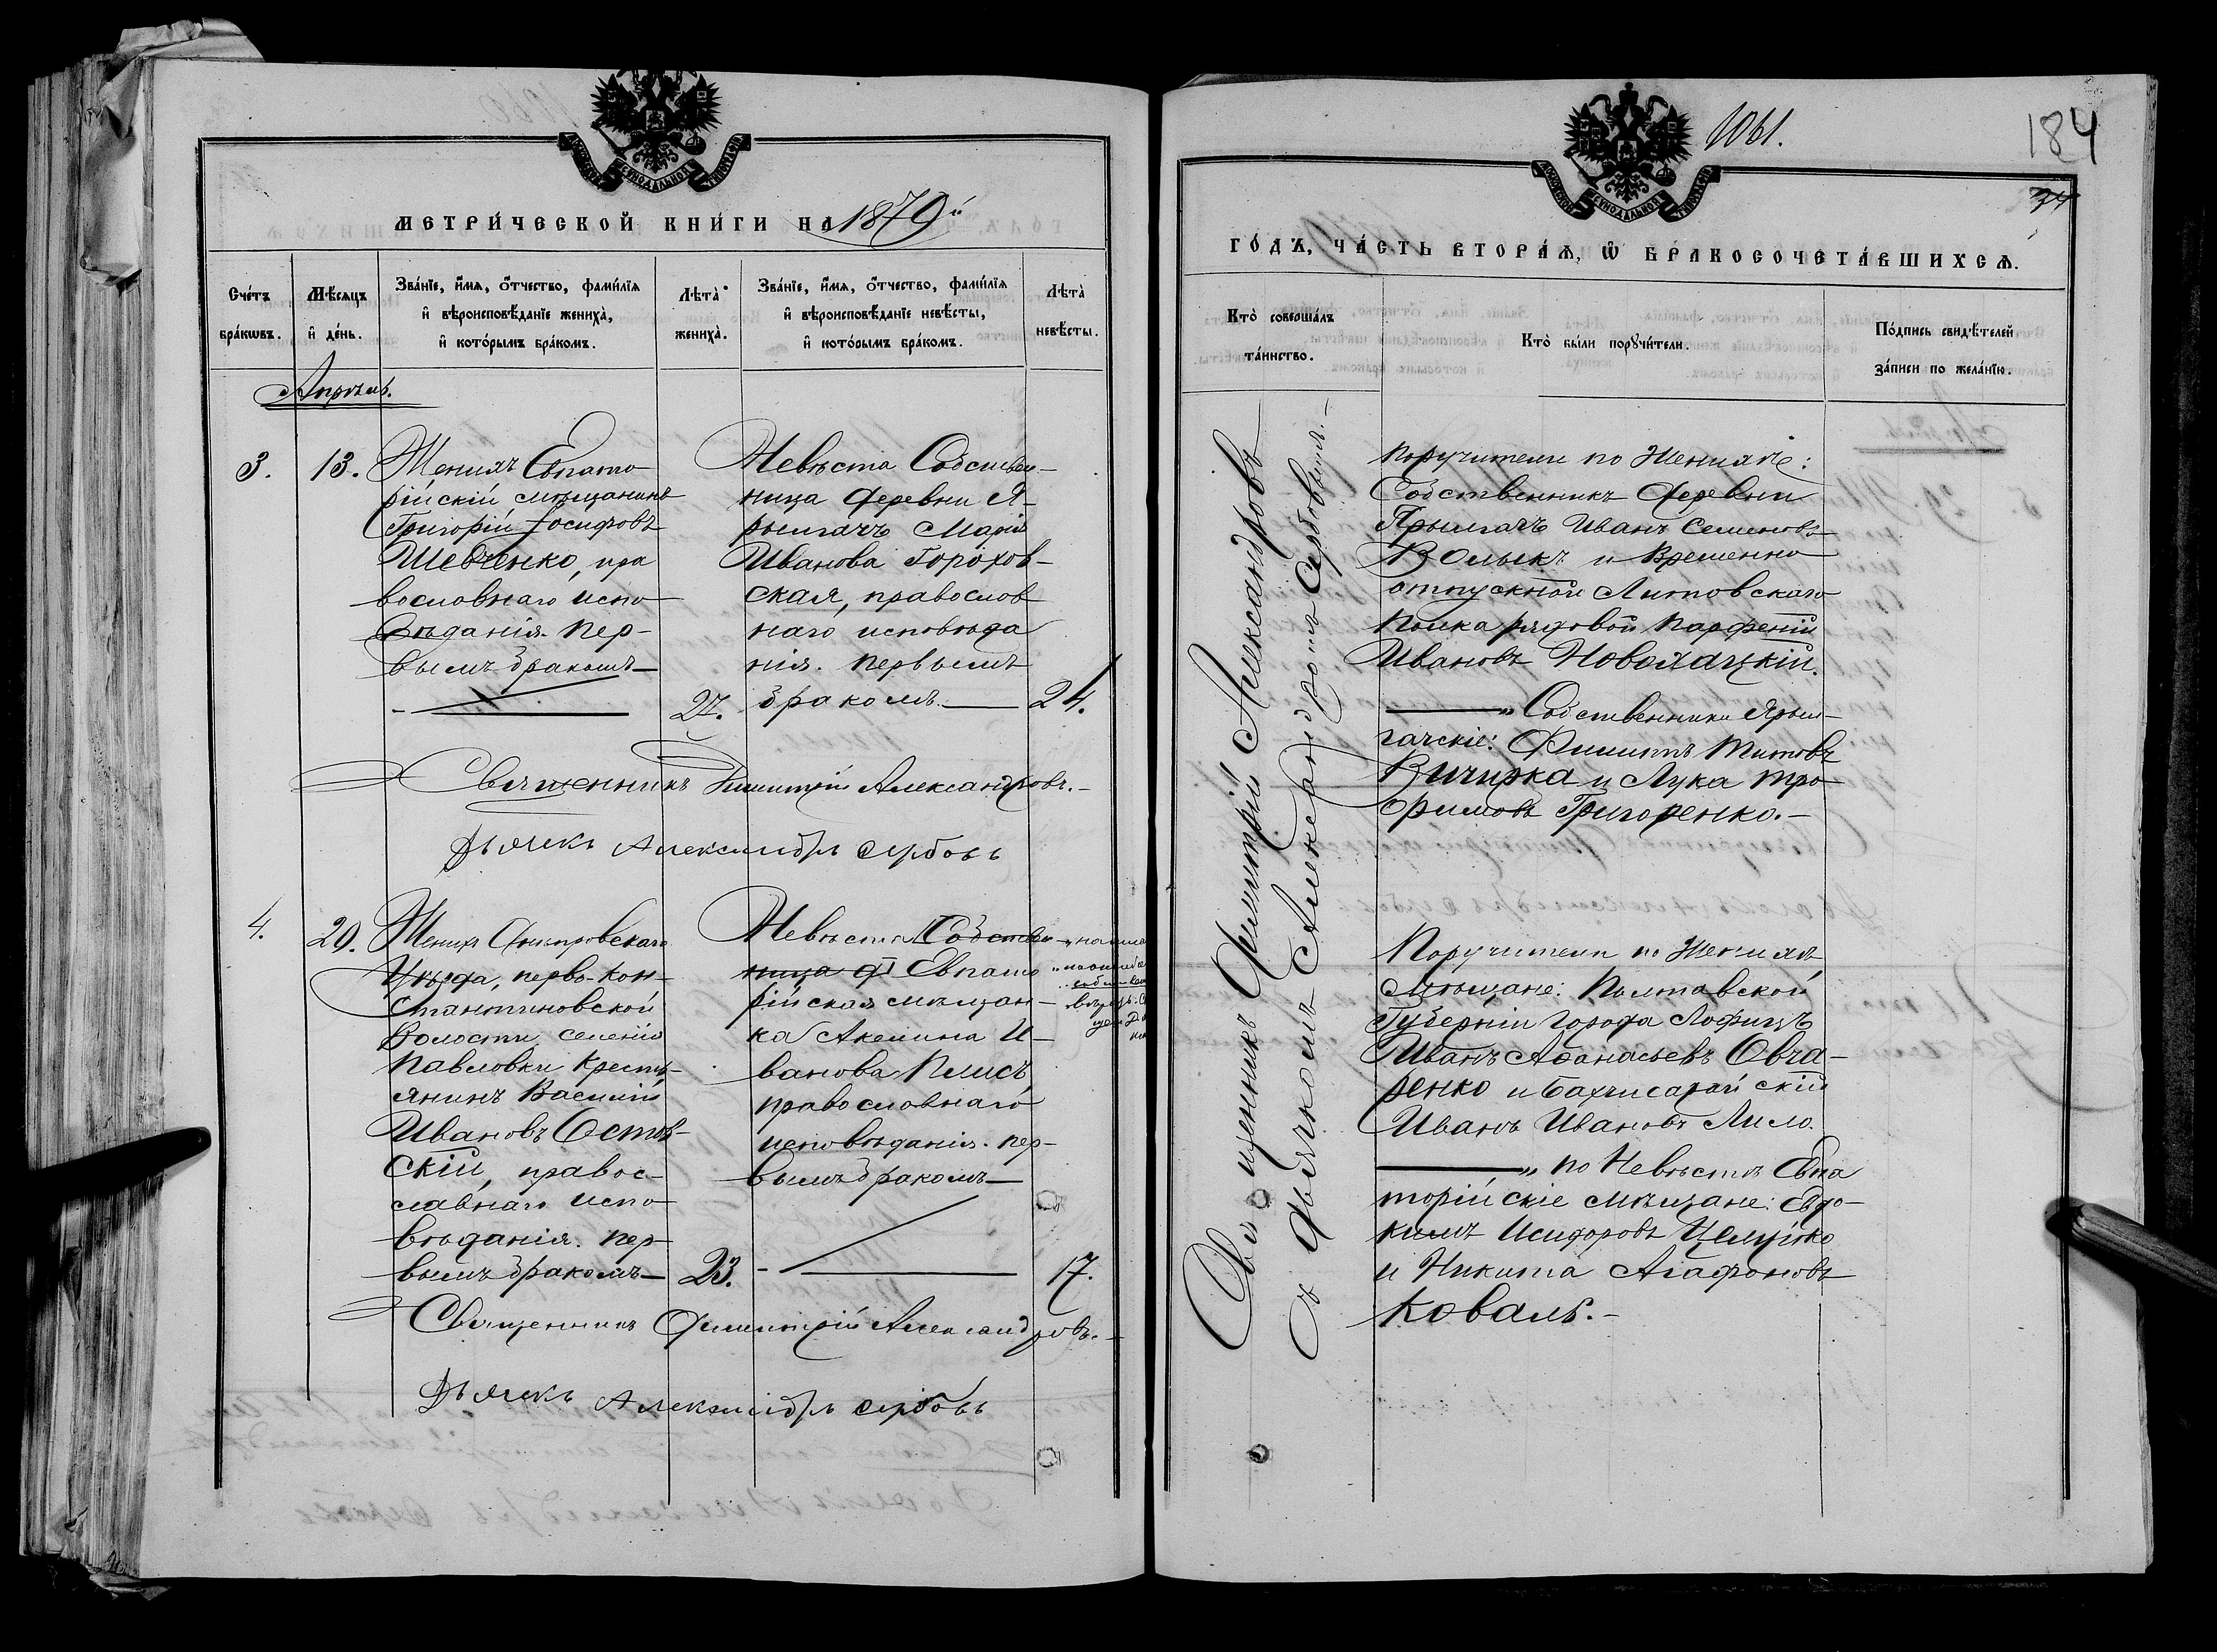 МЕТРИ́ЧЕСКОЙ КНИ́ГИ НА 1879й
Сче́тъ бра́кωвъ.
Мѣ́сяцъ и҆ де́нь.
Зва́нїе, и҆́мѧ, ѻ҆́тчество, фами́лїѧ
и҆ вѣроисповѣ́данїе жениха̀,
и҆ кото́рымъ бра́комъ.
Лѣта̀ жениха̀.
Зва́нїе, и҆́мѧ, ѻ҆́тчество, фами́лїѧ
и҆ вѣроисповѣ́данїе невѣ́сты,
и҆ кото́рымъ бра́комъ.
Лѣта̀ невѣ́сты.
Апрѣль.
3.
13.
Женихъ Евпато-
рійскій мѣщанинъ
Григорій Іосифовъ
Шевченко, пра
вославнаго испо-
вѣданія. Пер-
вымъ бракомъ—
27.
Невѣста Собствен-
ница деревни Я-
рылгачъ Марія
Иванова Горохов-
ская, православ
наго исповѣда
нія. Первымъ
бракомъ.—
24.
Священникъ Димитрій Александровъ.-
Дьячекъ Александръ Сербовъ
4.
29.
Женихъ Днѣпровскаго
Уѣзда, перво-Кон-
стантиновской
Волости, селенія
Павловки крестъ-
янинъ Василій
Ивановъ Остов-
скій, правос-
лавнаго испо-
вѣданія. Пер-
вымъ бракомъ—
23.
Невѣста Собствен-
ница Евпато
рійская мѣщан-
ка Акелина И-
ванова Плисъ,
православнаго
исповѣданія. пер-
вымъ бракомъ—
17.
Священникъ Димитрій Александровъ.-
Дьячекъ Александръ Сербовъ
1061.
184
34
ГО́ДЪ, ЧА́СТЬ ВТОРА́Ѧ, Ѡ҆ БРАКОСОЧЕТА́ВШИХСѦ.
Кто̀ соверша́лъ та́инство.
Кто̀ бы́ли порꙋчи́тели.
По́дпись свидѣ́телей
за́писи по жела́нїю.
Священникъ Димитрій Александровъ
съ дьячкомъ Александромъ Сербовымъ.—
Поручители по Женихѣ:
Собственникъ деревни
Ярылгачъ Иванъ Семеновъ
Волыкъ и Временно
отпускной Литовскаго
полка рядовой Парфеній
Ивановъ Новохацкій.
—„ Собственники Ярыл-
гачскіе: Филиппъ Титовъ
Вичирка и Лука Тро-
фимовъ Григоренко.—
Поручители по Женихѣ
Мѣщане: Полтавской
Губерніи города Лофицъ
Иванъ Афанасьевъ Овча-
ренко и Бахчисарайскій
Иванъ Ивановъ Лило.
—„ по Невѣстѣ Евпа
торійскіе мѣщане: Евдо-
кимъ Исидоровъ Целуйко
и Никита Агафоновъ
Коваль.-